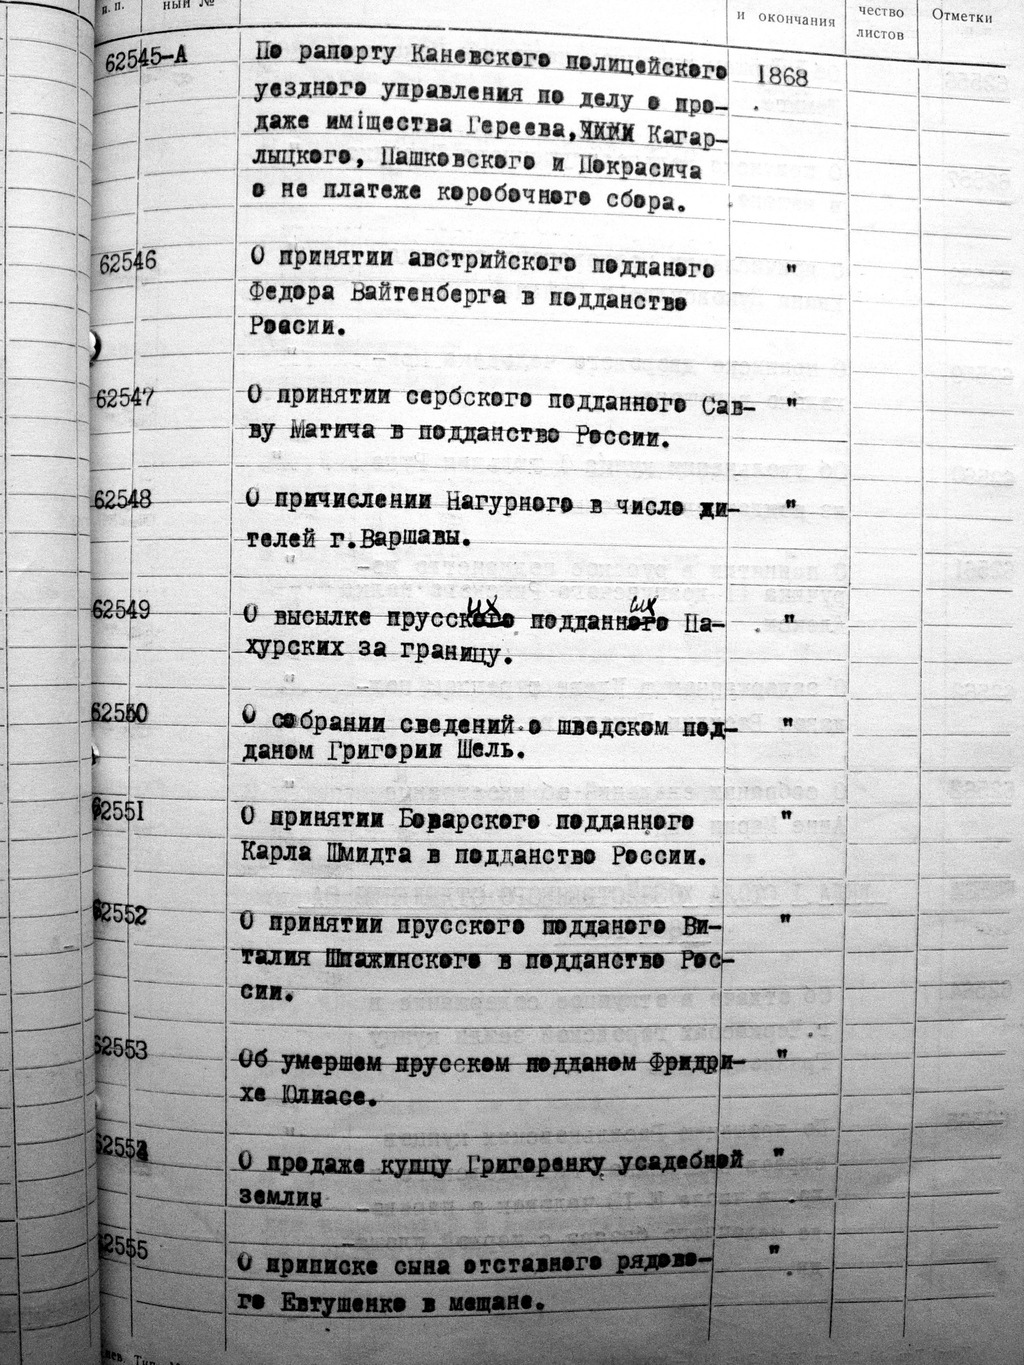 п. п.
ный №
и окончания
чество
листов
Отметки
62545-А По рапорту Каневского полицейского 1868
уездного управления по делу о про-
даже иміщества Гереева, Кагар-
лыцкого, Пашковского и Покрасича
о не платеже коробочного сбора.
62546 О принятии австрийского подданого "
Федора Вайтенберга в подданство
России.
62547 О принятии сербского подданного Сав- "
ву Матича в подданство России.
62548 О причислении Нагурного в число жи- "
телей г.Варшавы.
62549 О высылке прусских подданных Па- "
хурских за границу.
62550 О собрании сведений о шведском под- "
даном Григории Шель.
62551 О принятии Боварского подданного "
Карла Шмидта в подданство России.
62552 О принятии прусского подданого Ви- "
талия Шпажинского в подданство Рос-
сии.
62553 Об умершем прусском подданом Фридри- "
хе Юлиасе.
62554 О продаже купцу Григоренку усадебной "
земли
62555 О приписке сына отставного рядово- "
го Евтушенко в мещане.